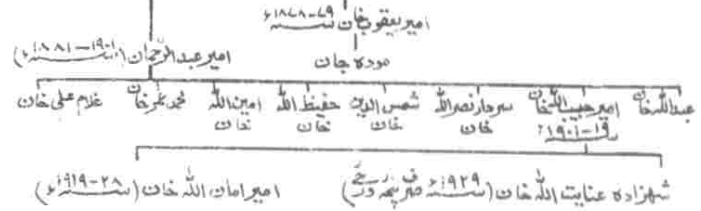 امیر یعقوب خان ۷۹-۱۸۷۸ء
امیر عبدالرحمان (۱۹۰۱-۱۸۸۱ء)
موده جان
عبداللہ خان امیر حبیب اللہ خان سردار نصر اللہ خان شمس الدین خان حفیظ اللہ خان امین اللہ خان محمد عمر خان غلام علی خان
۱۹-۱۹۰۱ء
شہزادہ عنایت اللہ خان (۱۹۲۹ء صرف) امیر امان اللہ خان (۲۸-۱۹۱۹ء)